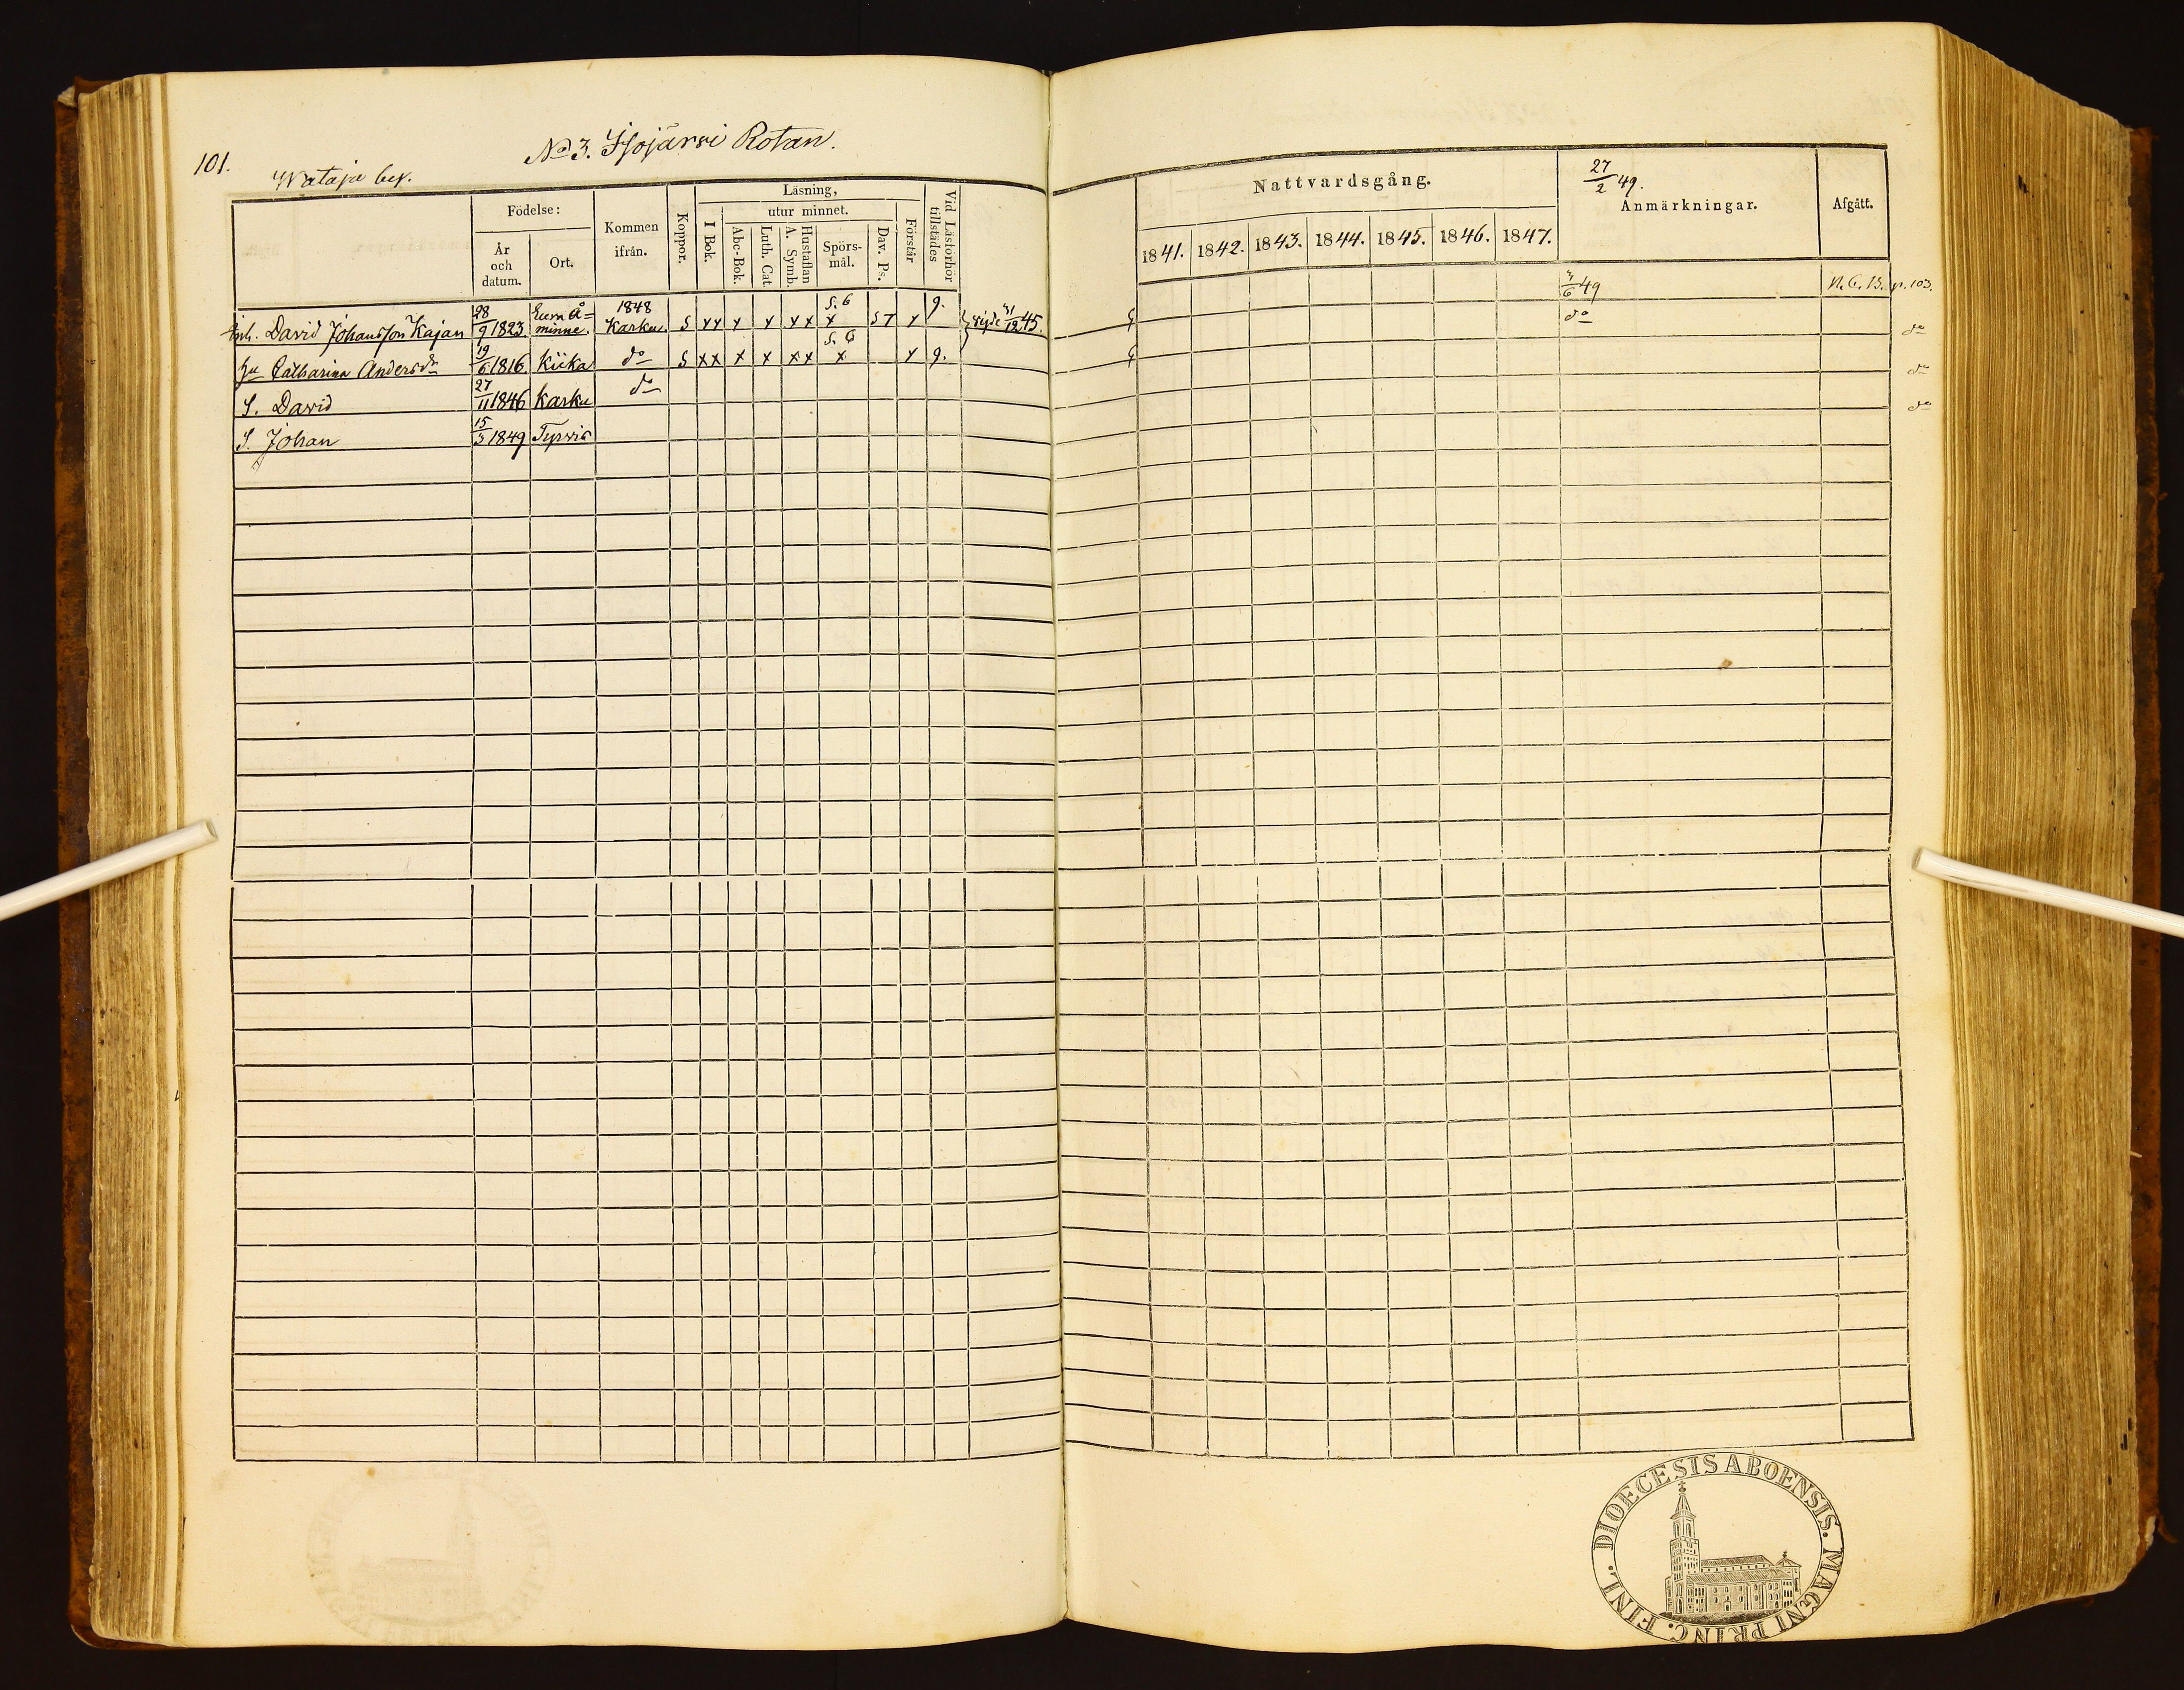 101.
No 3. Isojärvi Rotan.
Födelse:
År och datum.
Ort.
Kommen ifrån.
Koppor.
Läsning,
I Bok.
utur minnet.
Abc-Bok.
Luth. Cat.
Hustaflan
A. Symb.
Spörs-mål.
Dav. Ps.
Förstår
Vid Läsförhör tillstädes
Nattvardsgång.
1841. 1842. 1843. 1844. 1845. 1846. 1847.
27/2 49.
Anmärkningar.
Afgått.
Inh. David Johansson Kajan 28/9 1823. Eura Å=minne. 1848 Karku. s xx x x xx s. 6 x s 7 x g. vigde 31/12 45. 49 N. C. B. p. 103.
hu Catharina Andersdr 19/6 1816 Kiika do s xx x x xx s. 6 x x g. do do
S. David 27/11 1846 Karku do do
S. Johan 15/3 1849 Tyrvis do
DIOECESIS ABOENSIS. MAGNI PRINC. FINL.